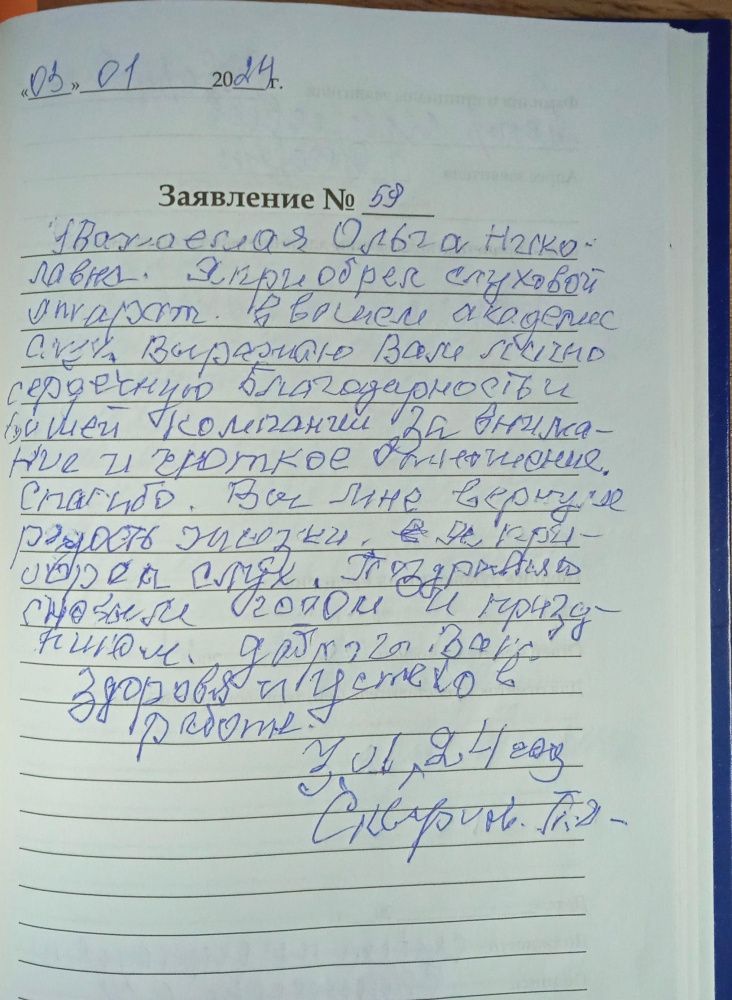 «03» 01 2024г.
Заявление № 59
Уважаемая Ольга Нико-
лавна. Я приобрел слуховой
аппарат. в вашем академие
слух. Выражаю Вам лично
сердечную благодарность и
вашей компании за внима-
ние и чуткое отношение.
Спасибо. Вы мне вернули
радость жизни. я при-
обрел слух. Поздравляю
с новым годом и празд-
ником. добрага Вам
Здоровя и успеха в
работе.
3,01,24 год
Скварцов. П.Я-